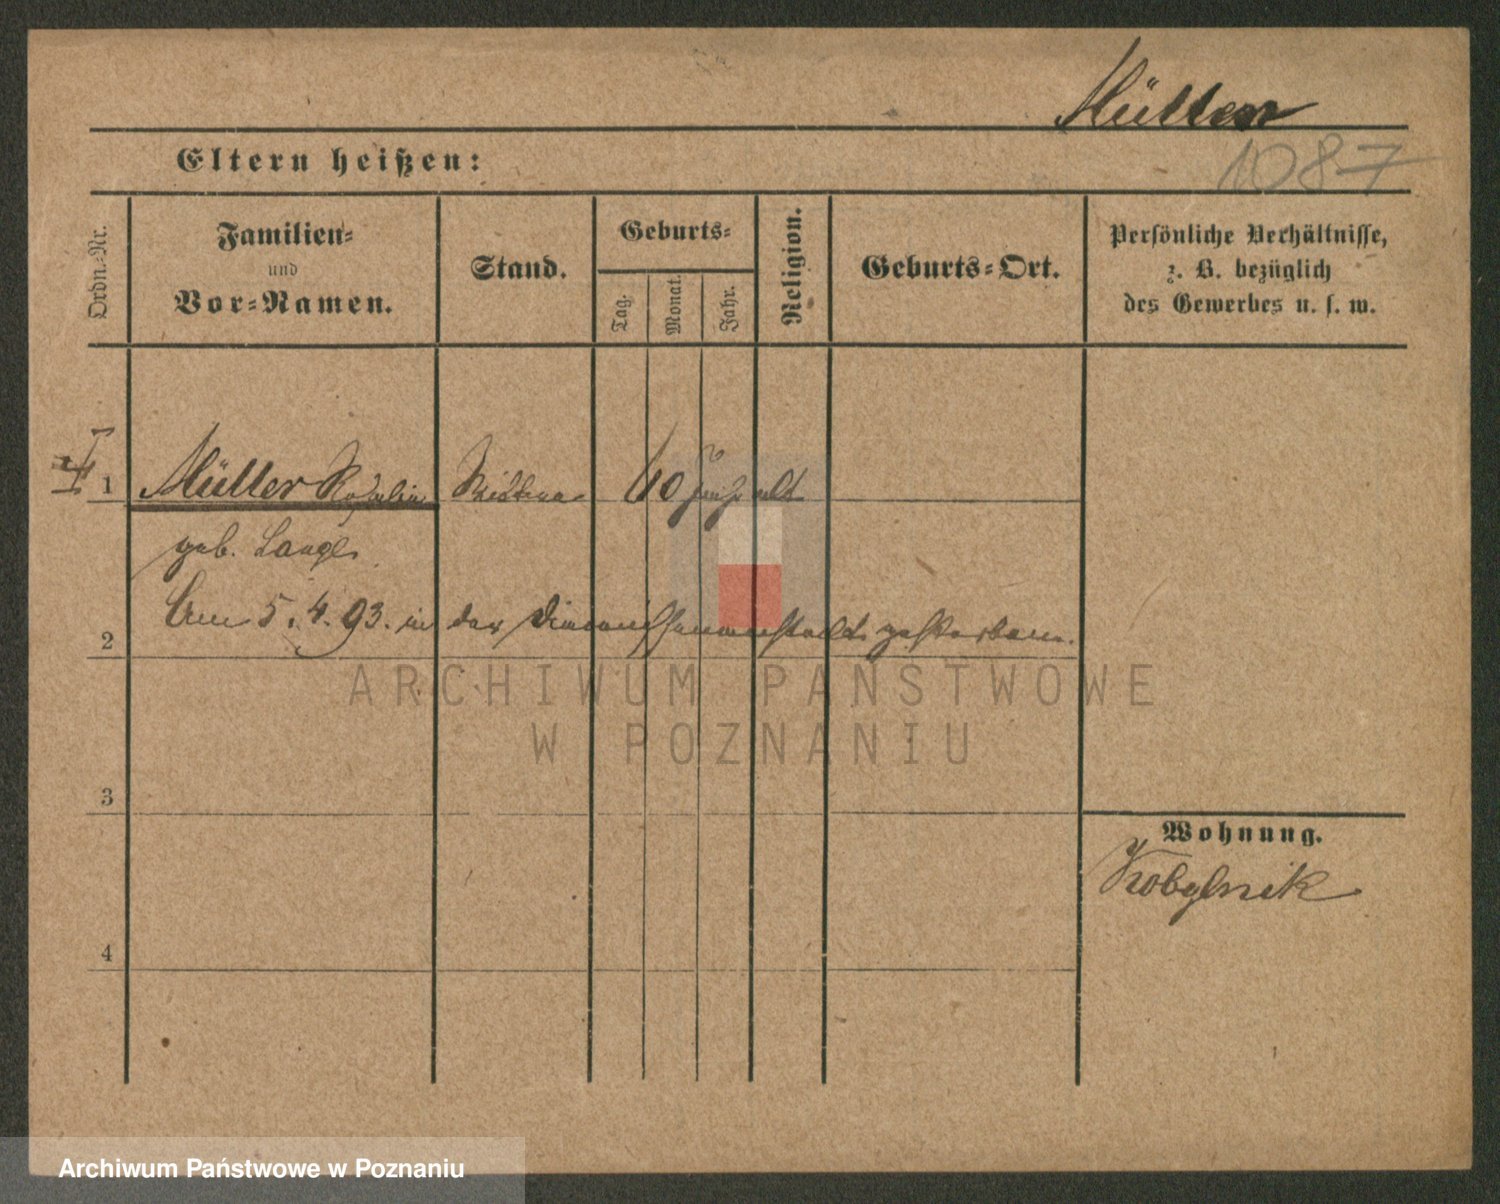 Müller
1087
Eltern heißen:
Ordn.-Nr.
Familien-
und
Vor-Namen.
Stand.
Geburts-
Tag.
Monat.
Jahr.
Religion.
Geburts-Ort.
Persönliche Verhältnisse,
z. B. bezüglich
des Gewerbes u. s. w.
1 Müller Rosalie Wittwe 60 Jahr alt
geb. Lange
Am 5.4.93. in der Diaconissenanstalt gestorben.
2
3
4
Wohnung.
Kobylnik
ARCHIWUM PAŃSTWOWE
W POZNANIU
Archiwum Państwowe w Poznaniu